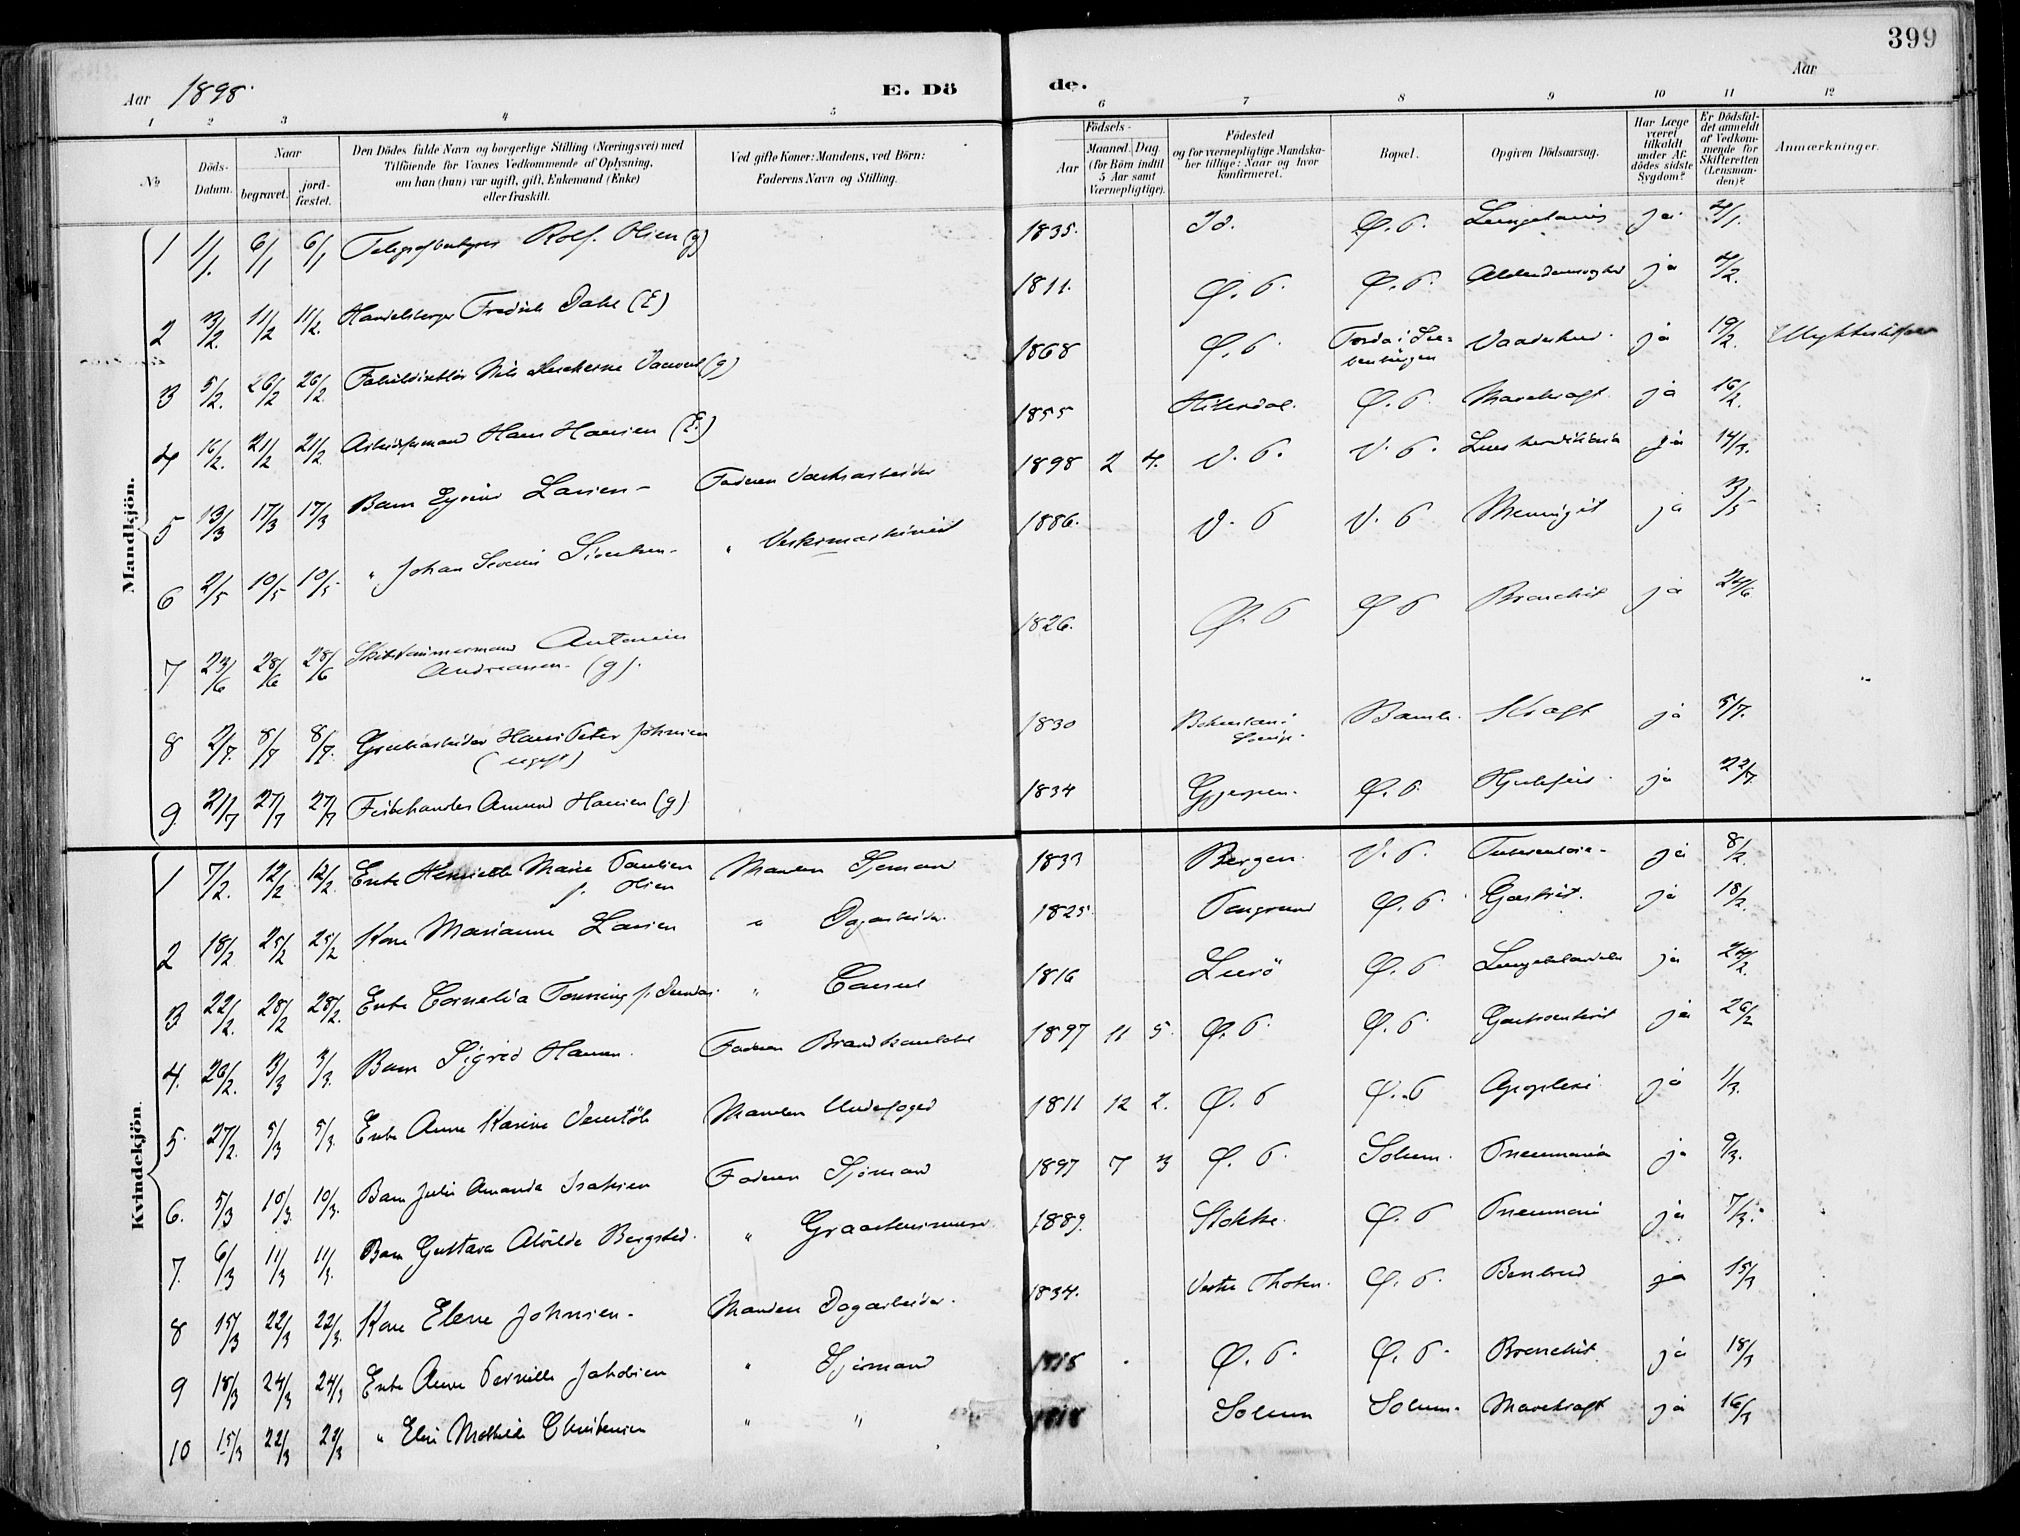 399
Aar 1898.
E. Dö de.
Aar
1 2 3 4 5 6 7 8 9 10 11 12
No
Döds-Datum.
Naar
begravet.
jord-fæstet.
Den Dödes fulde Navn og borgerlige Stilling (Næringsvei) med
Tilföiende for Voxnes Vedkommende af Oplysning,
om han (hun) var ugift, gift, Enkemand (Enke)
eller fraskilt.
Ved gifte Koner: Mandens, ved Börn:
Faderens Navn og Stilling.
Födsels-
Aar
Maaned. Dag.
(for Börn indtil
5 Aar samt
Værnepligtige).
Födested
og for værnepligtige Mandska-
ber tillige: Naar og hvor
konfirmeret.
Bopæl.
Opgiven Dödsaarsag.
Har Læge
været
tilkaldt
under Af-
dödes sidste
Sygdom?
Er Dödsfal-
det anmeldt
af Vedkom-
mende for
Skifteretten
(Lensman-
den)?
Anmærkninger.
Mandkjön.
1 1/1. 6/1 6/1 Rolf Olsen (g) 1835. Id. Ø. P. ja 4/1.
2 3/2. 11/2 11/2. Fredrik Dahl (E) 1811. Ø. P. Ø. P. ja 4/2.
3 5/2. 26/2 26/2. Nils (g) 1868 Ø. P. ja 19/2. Ulykkestilfælde
4 16/2. 21/2 21/2. Arbeidsmand Hans Hansen (E.) 1855 Hiterdal. Ø. P. Mavekræft ja 16/2.
5 13/3 17/3 17/3 Barn Eyvind Larsen - Faderen Værksarbeider 1898 2 4. V. P. V. P. ja 14/3.
6 2/5 10/5 10/5. " Johan Severin - " Verksmaskinist 1886. V. P V. P Meningit ja 3/5
7 23/6 28/6 28/6 Skibstømmermand
Andreassen. (g). 1826. Ø. P Ø P Bronchit ja 24/6
8 2/7. 8/7 8/7. Hans Peter Johnsen
(ugift) 1830 Bamb. Kræft ja 5/7.
9. 21/7 27/7 27/7 Fiskehandler Amund Hansen (g) 1834 Gjerpen. Ø. P. Hjertefeil. ja 22/7.
Kvindekjön.
1 7/2. 12/2 12/2. Enke Henriette Marie Paulsen
f. Olsen Manden Sjømand 1833 Bergen. V. P. Tuberculose - ja 8/2.
2 18/2 25/2 25/2 Kone Marianne Larsen " Dagarbeider. 1825. Porsgrund Ø. P. Gastrit. ja 18/2.
3 22/2. 28/2 28/2. Enke Cornelia " Consul 1816 Ø. P ja 24/2.
4. 26/2. 3/3 3/3. Barn Sigrid Hansen. Faderen 1897 11 5. Ø. P. Ø. P. Gastroenterit ja 26/2
5. 27/2. 5/3 5/3. Enke Anne Karine Manden Underfoged 1811 12 2. Ø. P Ø. P Apoplexi ja 1/3.
6. 5/3 10/3. 10/3. Barn Julie Amanda Isaksen Faderen Sjömand 1897 7 3 Ø. P. Solum. Pneumonia ja 9/3.
7. 6/3 11/3 11/3. Barn Gustava Alvilde Bergsted. " 1889. Stokke. Ø. P Pneumoni ja 7/3.
8 15/3 22/3 22/3. Kone Elene Johnsen - Manden Dagarbeider. 1834. Vestre Thoten. Ø. P. Benbrud ja 15/3
9 18/3 24/3 24/3 Enke Anne Pernille Jakobsen " Sjömand Ø. P. Ø. P. Bronchit ja 18/3
10 15/3 22/3 22/3 " Elen Mathilde Christensen " " 1818 Solum Solum. Mavekræft ja 16/3